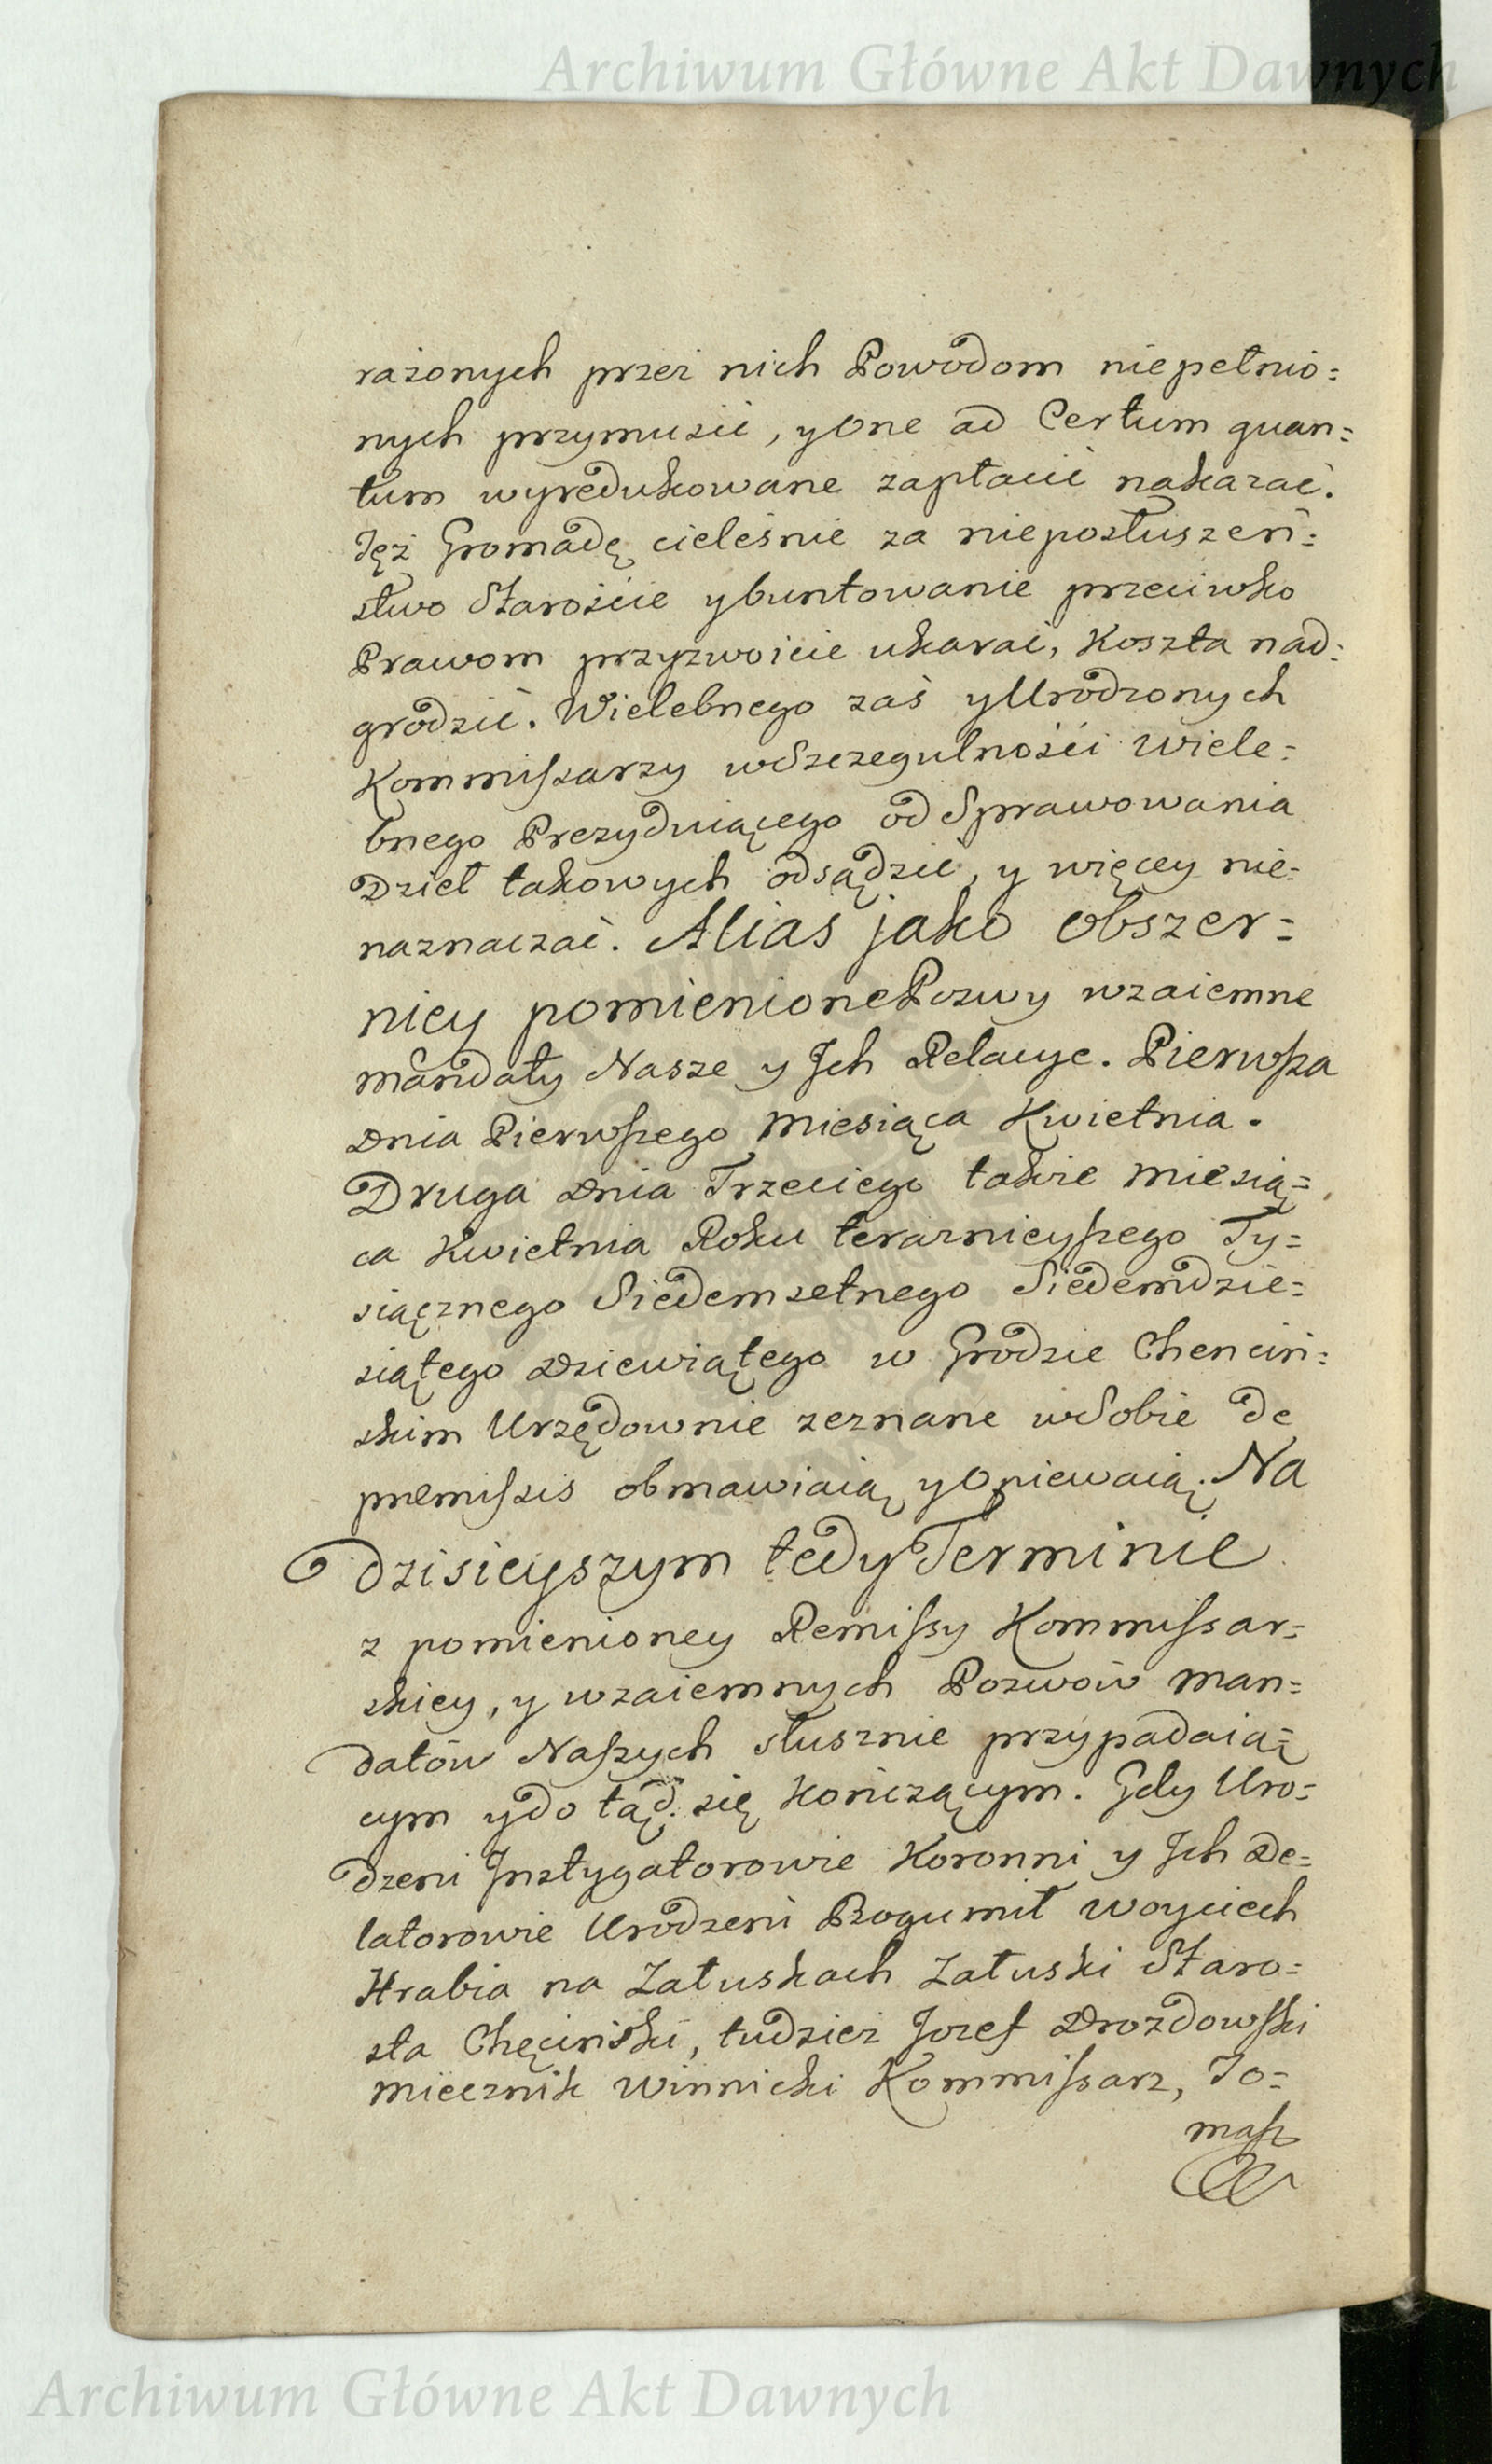 Archiwum Główne Akt Dawnych
rażonych przez nich Powodom niepełnio=
nych przymusić, y One ad Certum quan=
tum wyredukowane zapłacić nakazać.
Tęż Gromadę cieleśnie za nieposłuszeń=
stwo Staroście y buntowanie przeciwko
Prawom przyzwoicie ukarać, Koszta nad=
grodzić. Wielebnego zaś y Urodzonych
Kommissarzy w Szczegulności Wiele=
bnego Prezyduiącego od Sprawowania
Dzieł takowych odsądzić, y więcey nie=
naznaczać. Alias jako obszer=
niey pomienione Pozwy wzaiemne
mandaty Nasze y Ich Relacye. Pierwsza
Dnia Pierwszego Miesiąca Kwietnia.
Druga Dnia Trzeciego także Miesią=
ca Kwietnia Roku teraznieyszego Ty=
siącznego Siedemsetnego Siedemdzie=
siątego Dziewiątego w Grodzie Chenciń=
skim Urzędownie zeznane w Sobie de
premissis obmawiaią y Opiewaią. Na
dzisieyszym tedy Terminie
z pomienioney Remissy Kommissar=
skiey, y wzaiemnych Pozwów Man=
datów Naszych słusznie przypadaią=
cym y do tąd się kończącym. Gdy Uro=
dzeni Instygatorowie Koronni y Ich De=
latorowie Urodzeni Bogumił Woyciech
Hrabia na Załuskach Załuski Staro=
sta Chęciński, tudzież Jozef Drozdowski
Miecznik Winnicki Kommissarz, To=
masz
Archiwum Główne Akt Dawnych